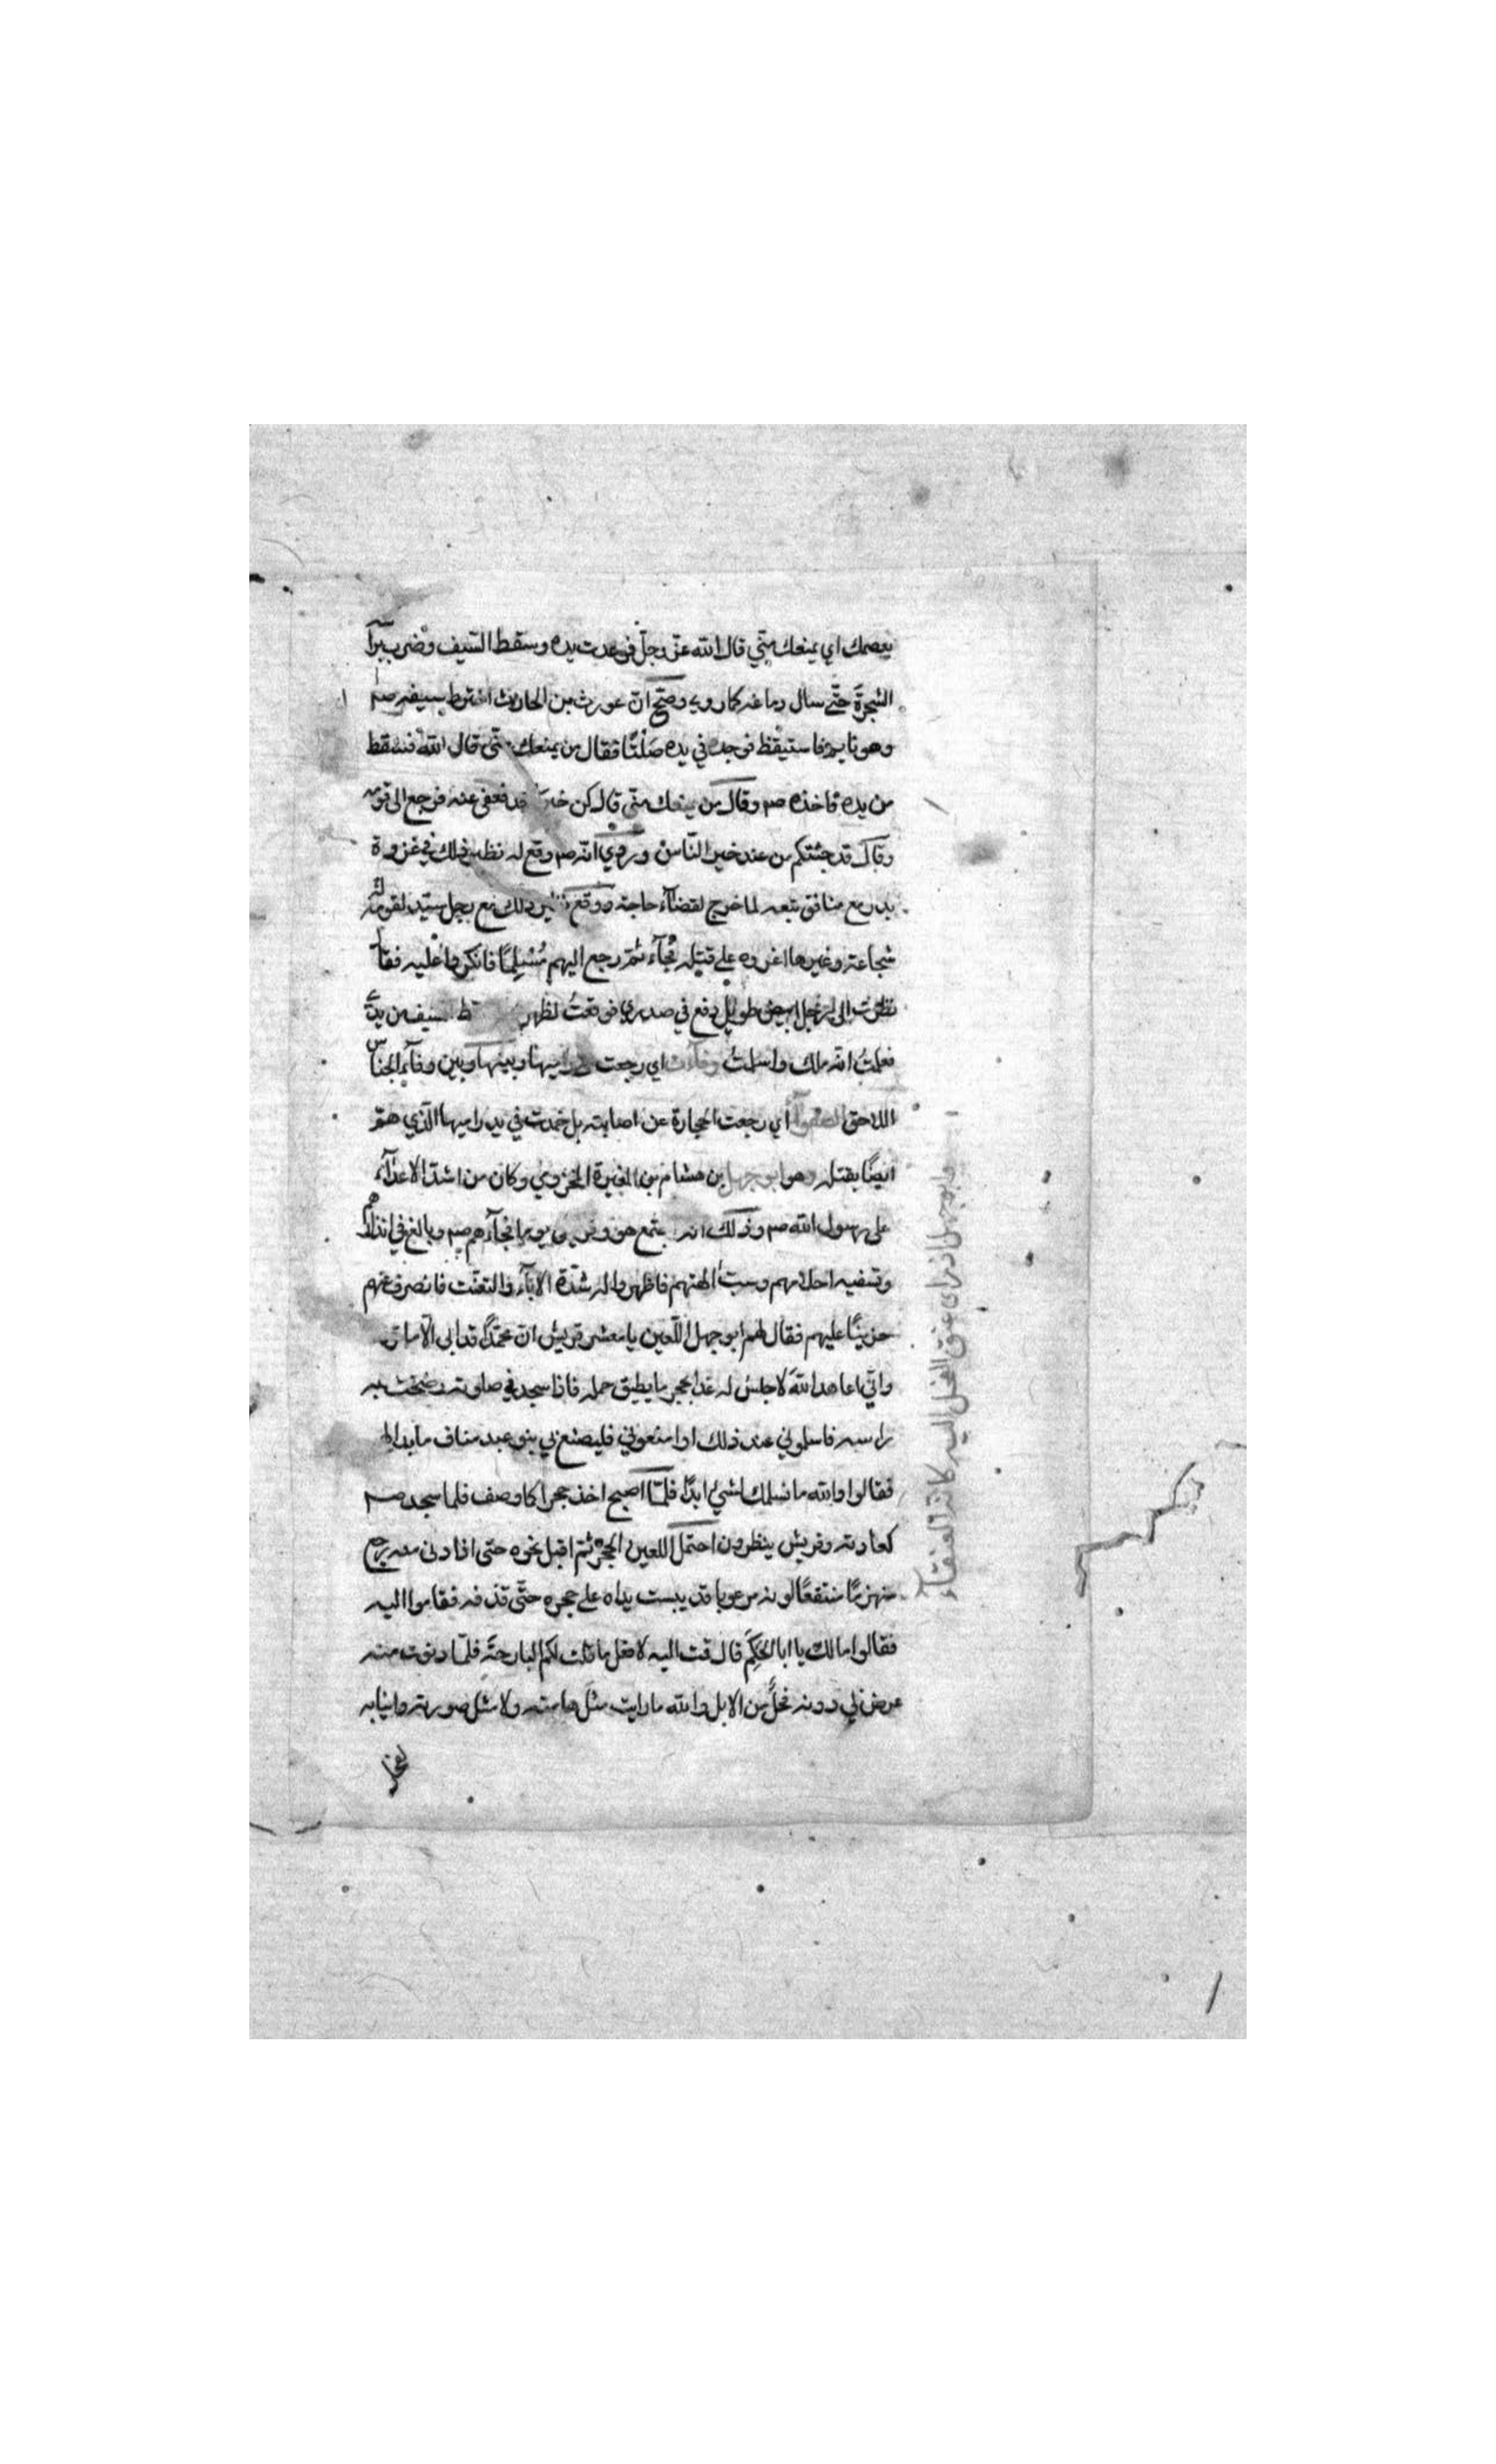 يعصمك اي يمنعك منّي قال الله عزّ وجلّ فرعدت يده وسقط السّيف وضرب برأسه
الشجرةَ حتّى سال دماغه كما روي وصحّ انّ غورث بن الحارث اخترط سيفه صم
وهو نايم فاستيقظ فوجده في يده صَلْتًا فقال من يمنعك منّي قال الله فسقط
من يده فاخذه صم وقال من يمنعك منّي قال كن خير اخذ فعفى عنه فرجع الى قومه
وقال قد جئتكم من عند خير النّاس وروي انّه صم وقع له نظير ذلك في غزوة
بدر مع منافق تبعه لما خرج لقضاء حاجته ووقع نظير ذلك مع رجل سيّد لقومه له
شجاعة وغيرها اغروه على قتله فجاء ثمّ رجع اليهم مُسْلِمًا فانكروا عليه فقال
نظرت الى رجل ابيض طويل دفع في صدري فوقعتُ لظهري وسقط السيف من يدي
فعلمتُ انّه ملك واسلمتُ وفاءت اي رجعت وبينها وبين وفاء الجناس
اللاحق الصفواء اي رجعت الحجارة عن اصابته بل خمدت في يد راميها الّذي همّ
ايضًا بقتله وهو ابو جهل بن هشام بن المغيرة المخزومي وكان من اشدّ الاعداء
على رسول الله صم وذلك انه اجتمع هو وقريش يوما فجاءهم صم وبالغ في انذارهم
وتسفيه احلامهم وسبّ الهتهم فاظهروا له شدّة الاباء والتعنّت فانصرف عنهم
حزينًا عليهم فقال لهم ابو جهل اللّعين يا معشر قريش انّ محمّدًا قد ابى الّا ما ترون
وانّي اعاهد اللهَ لاجلس له غدا بحجر ما يطيق حمله فاذا سجد في صلوته رضخت به
راسه فاسلموني عند ذلك او امنعوني فليصنع بي بنو عبد مناف ما بدا لهم
فقالوا والله ما نسلمك لشيئ ابدًا فلمّا اصبح اخذ حجرا كما وصف فلما سجد صم
كعادته وقريش ينظرون احتمل اللعين الحجر ثمّ اقبل نحوه حتى اذا دنى منه رجع
منهزمًا منتقعًا لونه مرعوبا قد يبست يداه على حجره حتّى قذفه فقاموا اليه
فقالوا مالك يا ابا الحَكَمِ قال قمت اليه لافعل ما قلت لكم البارحةَ فلمّا دنوت منه
عرض لي دونه فحلٌ من الابل والله ما رايت مثلَ هامته ولا مثل صورته وانيابه
لفحل
وابو جهل اذ راى عنق الفحل اليه كانّه العنقاء